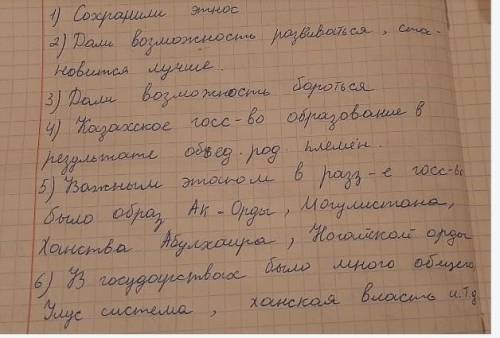 1) Сохранили этнос
2) Дали возможность развиваться, ста-
новится лучше.
3) Дали возможность бороться
4) Казахское госс-во образование в
результате объед. род племён.
5) Важным этапом в разз-е госс-вы
было образ Ак-Орды, Могулистана,
Ханства Абулхаира, Ногайской орды
6) У государствах было много общего
Улус система, ханская власть и.т.д